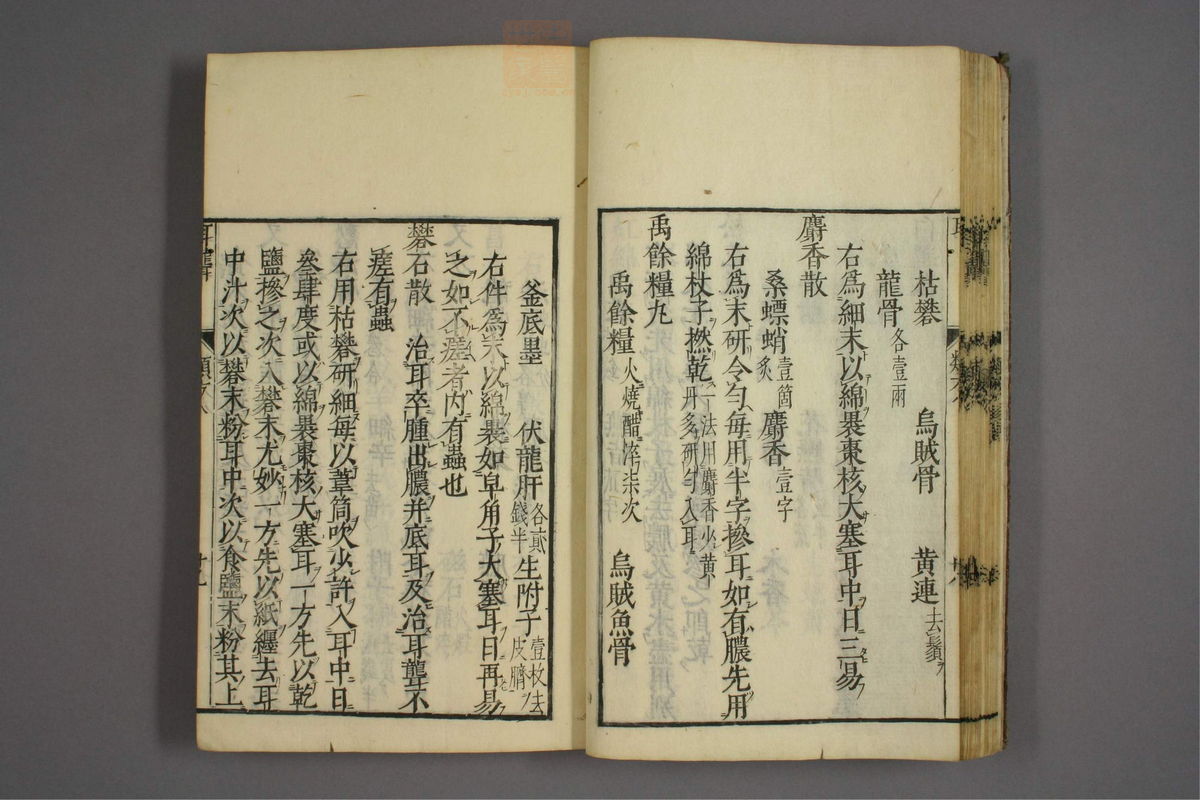 枯礬　烏賊骨　黄連去鬚
龍骨各壹兩
右爲細末以綿裹棗核大塞耳中日三易
麝香散
桑螵蛸壹箇炙　麝香壹字
右爲末研令勻每用半字摻耳如有膿先用
綿杖子撚乾一法用麝香少黄丹多研勻入耳
禹餘糧丸
禹餘糧火燒醋淬柒次　烏賊魚骨
釜底墨　伏龍肝各貳錢半　生附子壹枚去皮臍
右件爲末以綿裹如皁角子大塞耳日再易
之如不瘥者内有蟲也
礬石散　治耳卒腫出膿并底耳及治耳聾不
瘥有蟲
右用枯礬研細每以葦筒吹少許入耳中日
叄肆度或以綿裹棗核大塞耳一方先以乾
鹽摻之次入礬末尤妙一方先以紙纏去耳
中汁次以礬末粉耳中次以食鹽末粉其上
耳聾